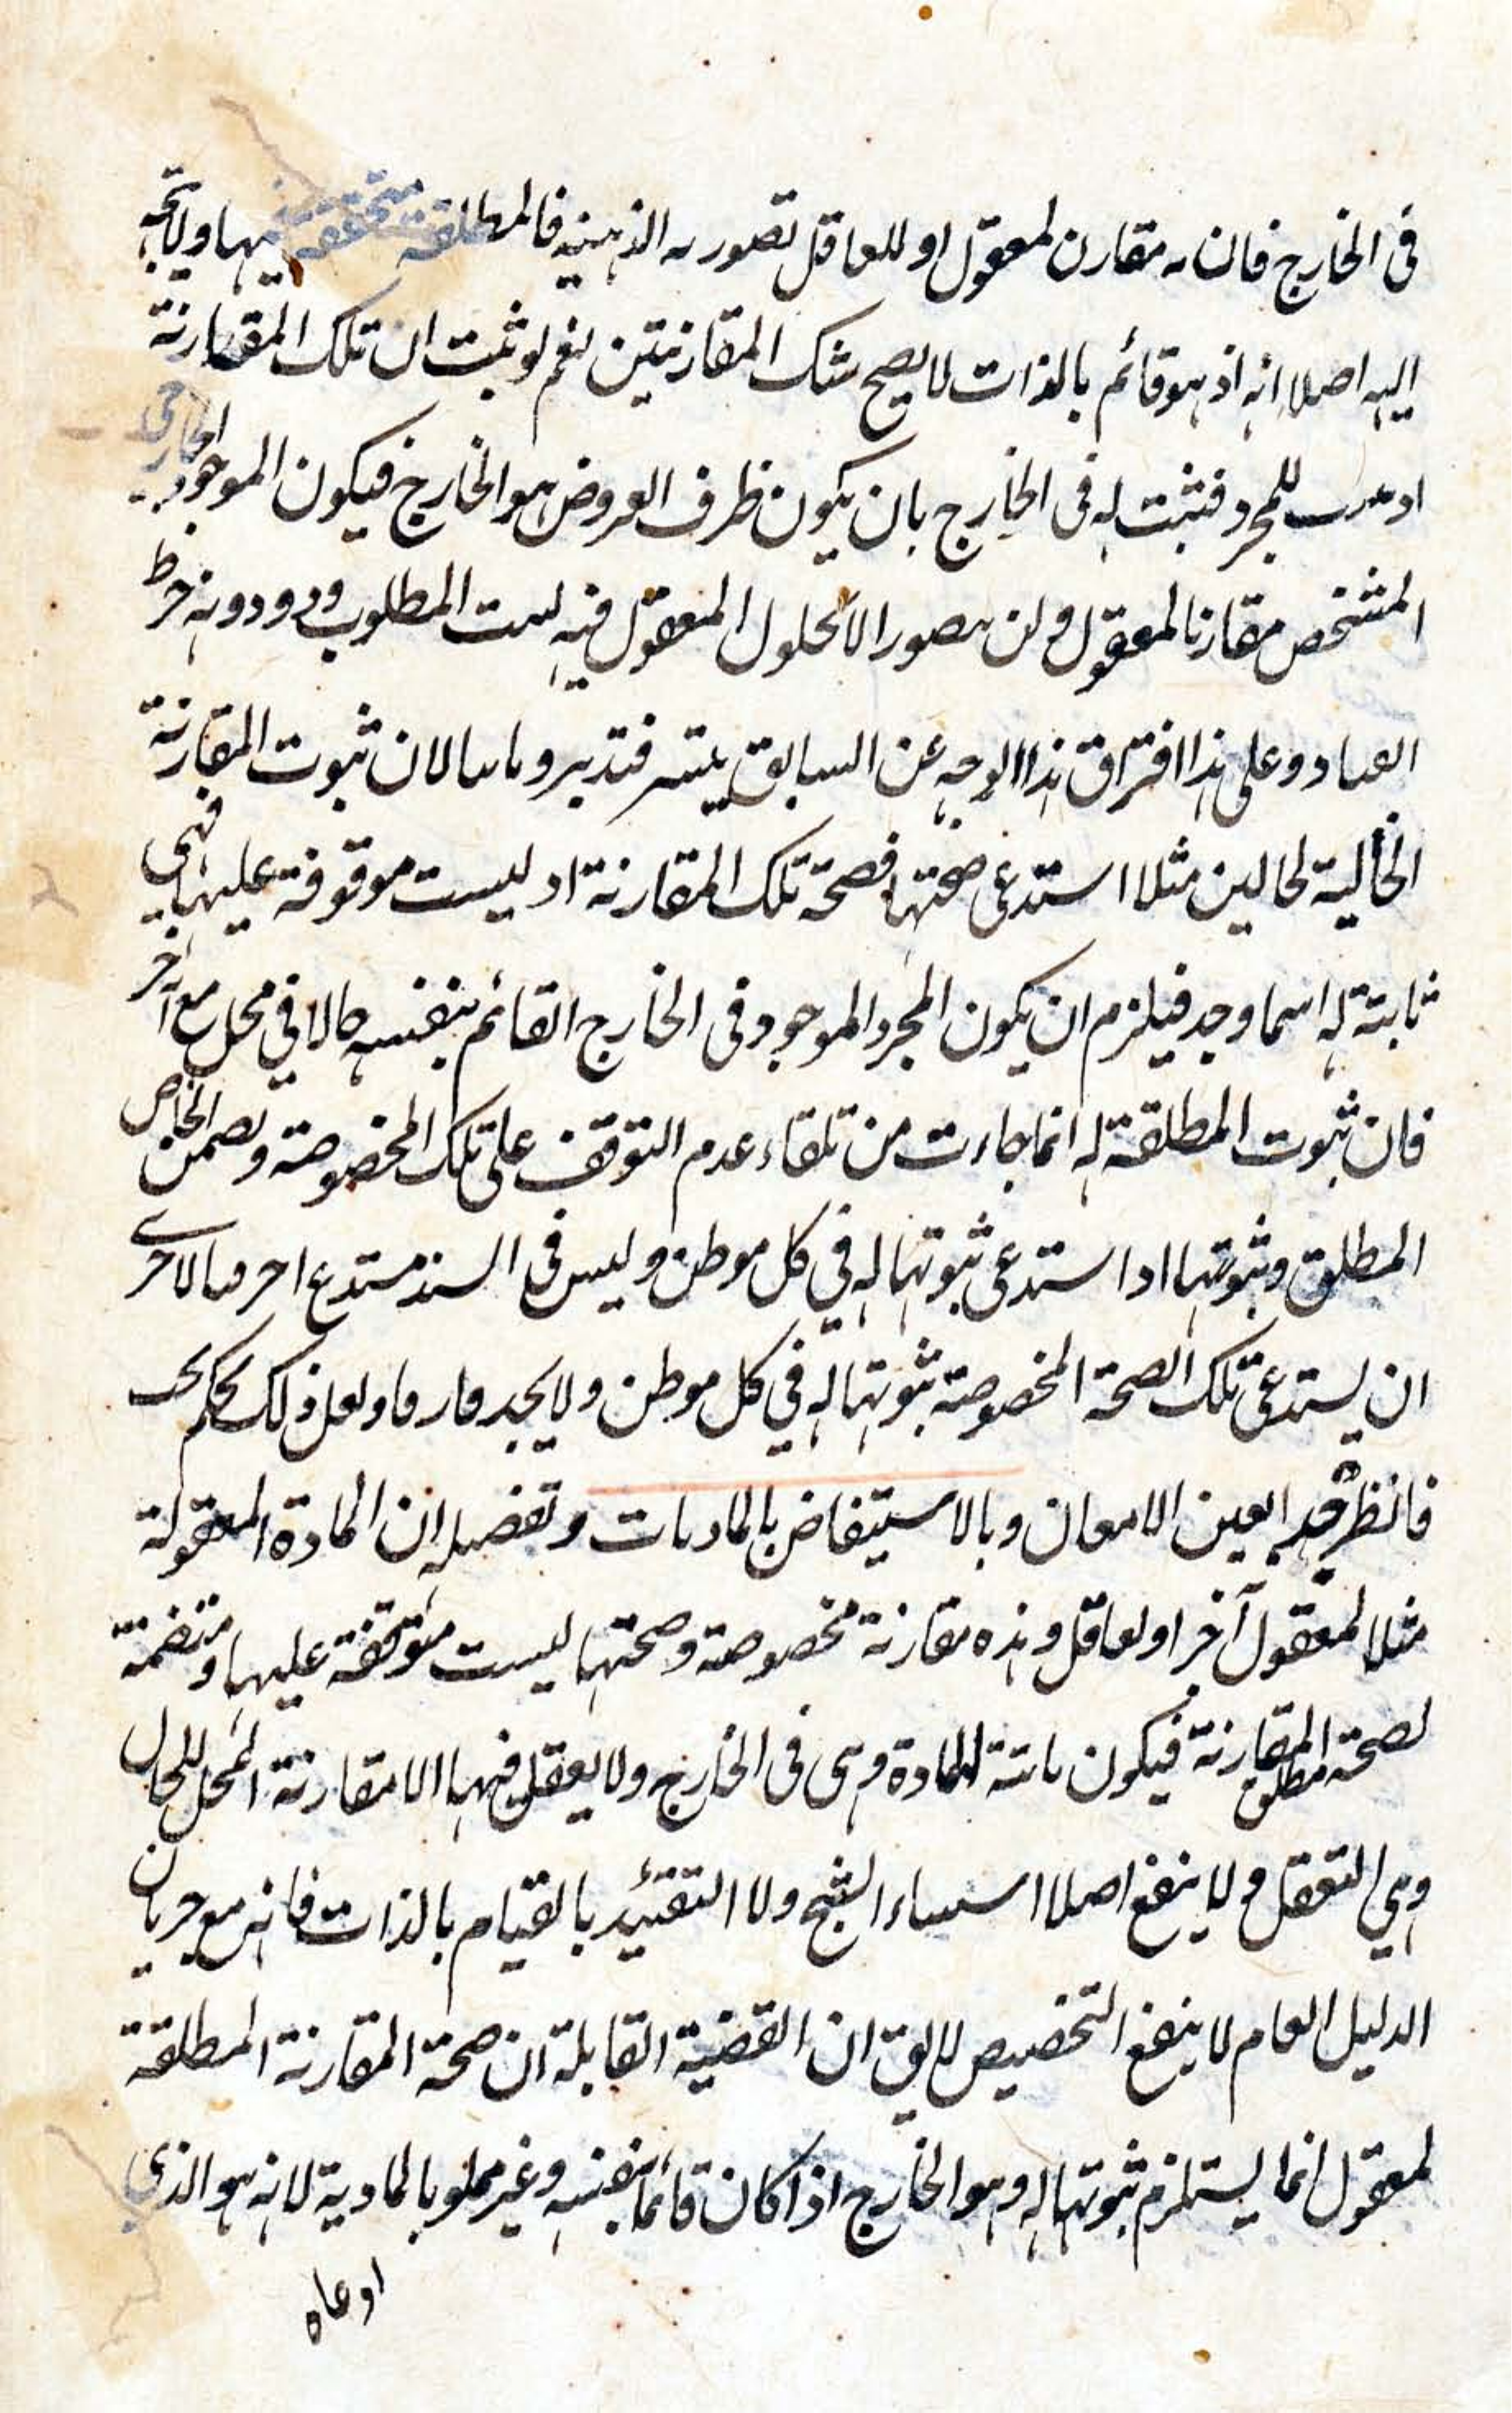 فى الخارج فان مقارن لمعقول او للعاقل تصور الذهنيه فالمطلقة متحققة فيها ولا يتجه
اليه اصلا انه اذ هو قائم بالذات لا يصح شك المقارنتين نعم لو ثبت ان تلك المقارنة
للمجرد فثبت له فى الخارج بان يكون ظرف العروض هو الخارج فيكون الموجود الخارجى
المشخص مقارنا لمعقول ولن يتصور الا لحلول المعقول فيه المطلوب ودونه خرط
القتاد وعلى هذا افتراق هذا الوجه عن السابق يتيسر فتدبر وثانيا لان ثبوت المقارنة
الحالية لحالين مثلا استدعى صحتها فصحة تلك المقارنة اذ ليست موقوفة عليها فهى
ثابتة له اينما وجد فيلزم ان يكون المجرد الموجود فى الخارج القائم بنفسه حالا في محل مع آخر
فان ثبوت المطلقة له انما جاءت من تلقاء عدم التوقف على تلك المخصوصة وتضمن الخاص
المطلق وثبوتها اذا استدعى ثبوتها له في كل موطن وليس فى السند مستدع اخر فبالاحرى
ان يستدعى تلك الصحة المخصوصة ثبوتها له في كل موطن ولا يجد فارقا ولعل ذلك تحكم
فانظر فيه بعين الامعان وبالاستيفاض بالماديات وتفصيله ان المادة المعقولة
مثلا لمعقول آخر او لعاقل وهذه مقارنة مخصوصة وصحتها ليست متوقفة عليها ومتضمنة
لصحة مطلق المقارنة فيكون ثابتة للمادة وهى فى الخارج ولا يعقل فيها الا مقارنة المحل للحال
وهي التعقل ولا ينفع اصلا استثناء الشبح ولا التقييد بالقيام بالذات فانه مع جريان
الدليل العام لا ينفع التخصيص لا يق ان القضية القابلة ان صحة المقارنة المطلقة
لمعقول انما يستلزم ثبوتها له وهو الخارج اذا كان قائما بنفسه وغير مملو بالمادية لانه هو الذي
ادعاه